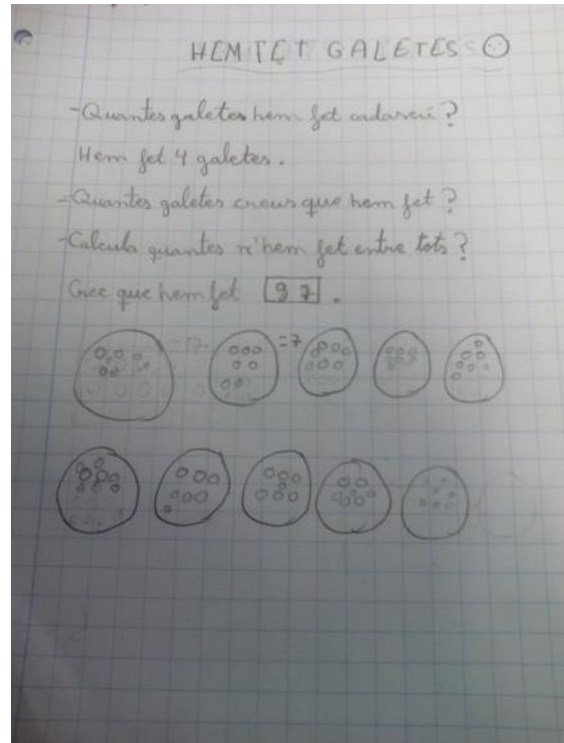 HEM FET GALETES
-Quantes galetes hem fet cadascú?
Hem fet 4 galetes.
-Quantes galetes creus que hem fet?
-Calcula quantes n'hem fet entre tots?
Crec que hem fet 97.
=17 =7